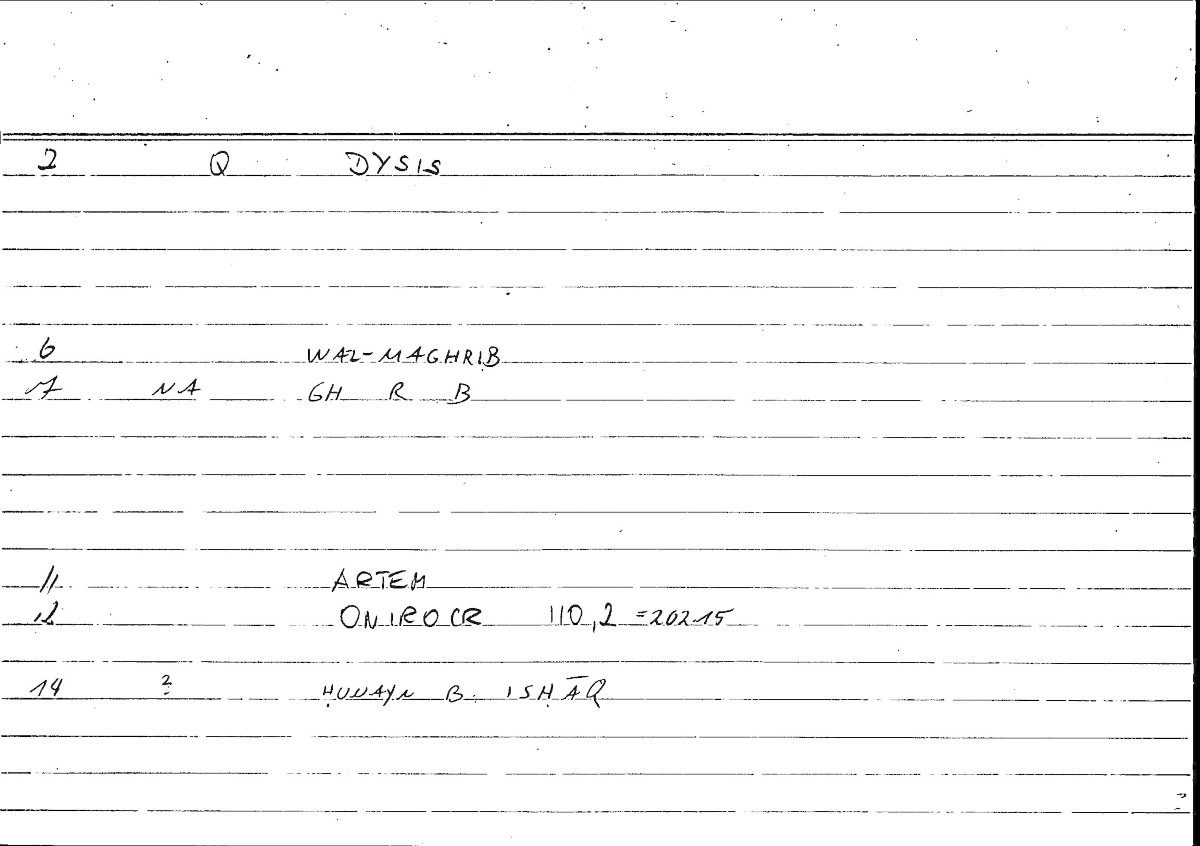 2 Q DYSIS
6 WAL-MAGHRIB
7 NA GH R B
11 ARTEM
12 ONIROCR 110,2 =202.15
14 ? ḤUNAYN B. ISḤĀQ